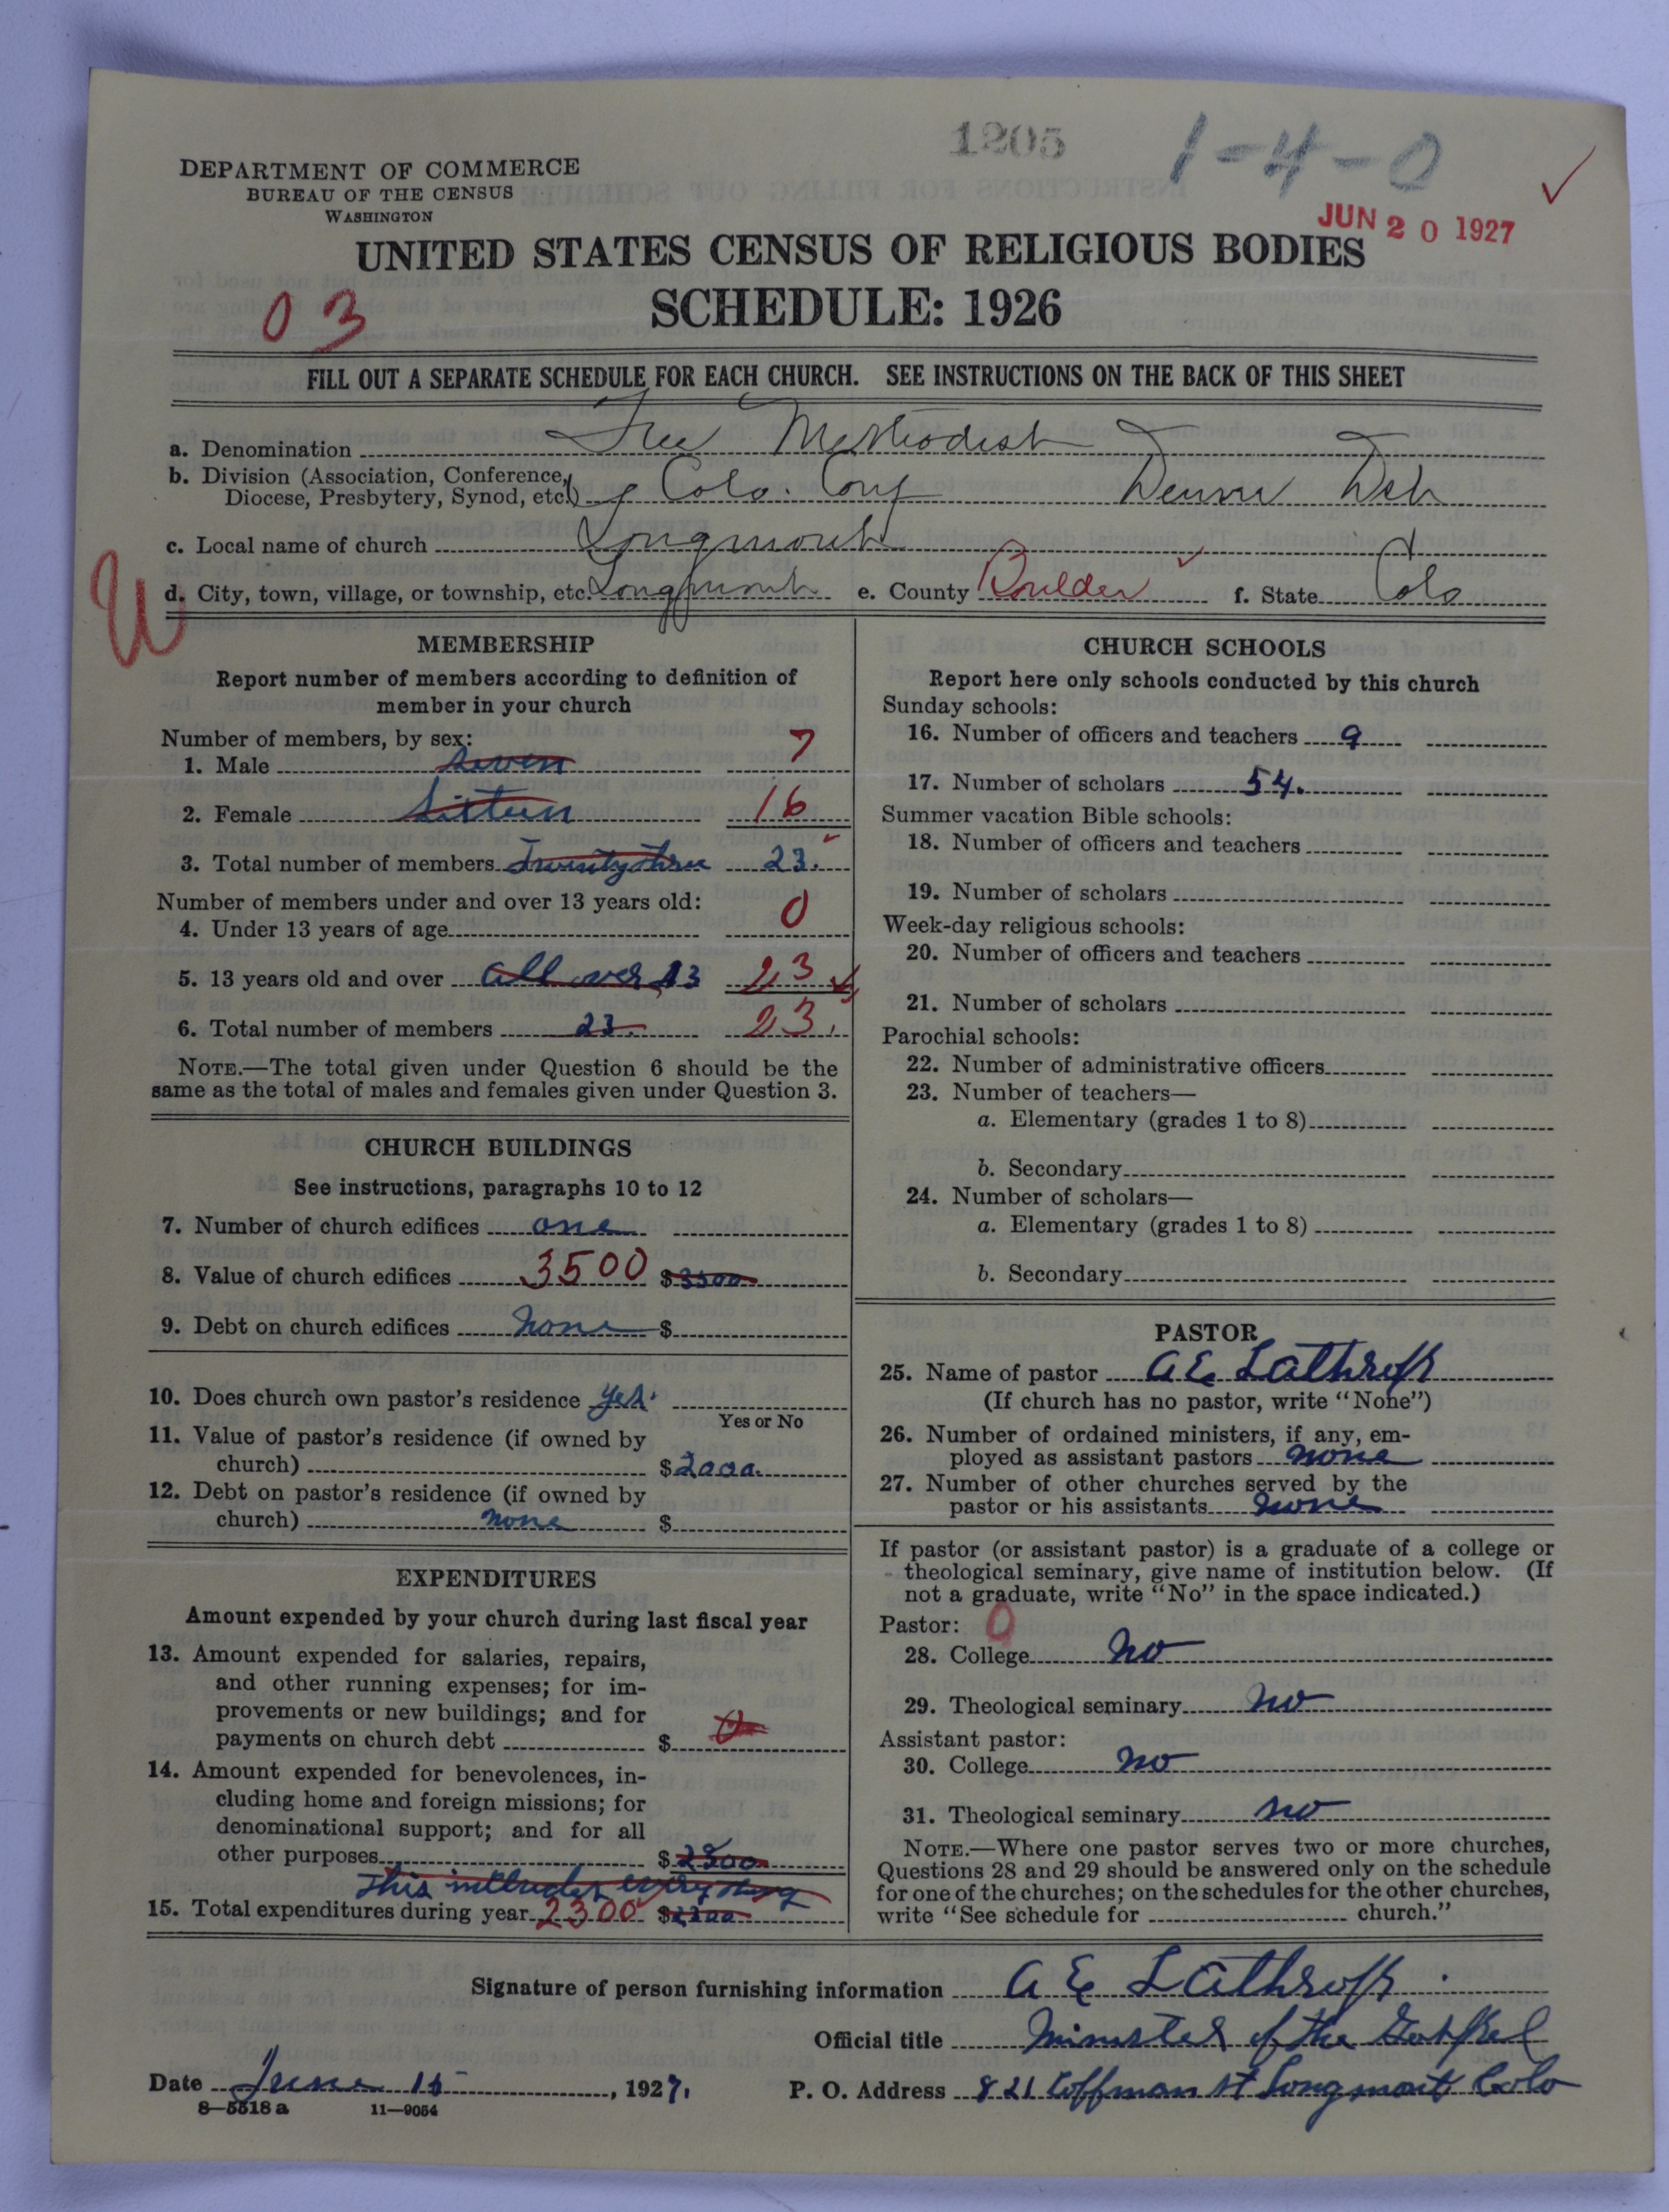 1205
1-4-0
DEPARTMENT OF COMMERCE
BUREAU OF THE CENSUS
WASHINGTON
JUN 20 1927
UNITED STATES CENSUS OF RELIGIOUS BODIES
SCHEDULE: 1926
03
FILL OUT A SEPARATE SCHEDULE FOR EACH CHURCH. SEE INSTRUCTIONS ON THE BACK OF THIS SHEET
a. Denomination Free Methodist
b. Division (Association, Conference,
Diocese, Presbytery, Synod, etc.) Colo. Conf Denver Dist
c. Local name of church Longmont
d. City, town, village, or township, etc. Longmont e. County Boulder f. State Colo
W
MEMBERSHIP
Report number of members according to definition of
member in your church
Number of members, by sex:
1. Male seven 7
2. Female Sixteen 16
3. Total number of members Twenty three 23.
Number of members under and over 13 years old:
4. Under 13 years of age 0
5. 13 years old and over all over 13 23
6. Total number of members 23. 23.
NOTE.—The total given under Question 6 should be the
same as the total of males and females given under Question 3.
CHURCH BUILDINGS
See instructions, paragraphs 10 to 12
7. Number of church edifices one
8. Value of church edifices 3500 $3500
9. Debt on church edifices None $
10. Does church own pastor's residence yes.
Yes or No
11. Value of pastor's residence (if owned by
church) $2000.
12. Debt on pastor's residence (if owned by
church) none $
EXPENDITURES
Amount expended by your church during last fiscal year
13. Amount expended for salaries, repairs,
and other running expenses; for im-
provements or new buildings; and for
payments on church debt $ 0
14. Amount expended for benevolences, in-
cluding home and foreign missions; for
denominational support; and for all
other purposes $2300
This includes everything
15. Total expenditures during year 2300 $2300
CHURCH SCHOOLS
Report here only schools conducted by this church
Sunday schools:
16. Number of officers and teachers 9
17. Number of scholars 54.
Summer vacation Bible schools:
18. Number of officers and teachers
19. Number of scholars
Week-day religious schools:
20. Number of officers and teachers
21. Number of scholars
Parochial schools:
22. Number of administrative officers
23. Number of teachers—
a. Elementary (grades 1 to 8)
b. Secondary
24. Number of scholars—
a. Elementary (grades 1 to 8)
b. Secondary
PASTOR
25. Name of pastor A E Lathrop
(If church has no pastor, write "None")
26. Number of ordained ministers, if any, em-
ployed as assistant pastors none
27. Number of other churches served by the
pastor or his assistants none
If pastor (or assistant pastor) is a graduate of a college or
theological seminary, give name of institution below. (If
not a graduate, write "No" in the space indicated.)
Pastor: 0
28. College no
29. Theological seminary no
Assistant pastor:
30. College no
31. Theological seminary no
NOTE.—Where one pastor serves two or more churches,
Questions 28 and 29 should be answered only on the schedule
for one of the churches; on the schedules for the other churches,
write "See schedule for church."
Signature of person furnishing information A E Lathrop.
Official title Minister of the Gospel
Date June 15, 1927. P. O. Address 821 Coffman st Longmont Colo
8-5518 a 11-9054